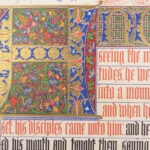 seeing the m
tudes, he we
into a moun
and when h
set, his disciples came unto him: and he
ed his mouth, and taught them, saying